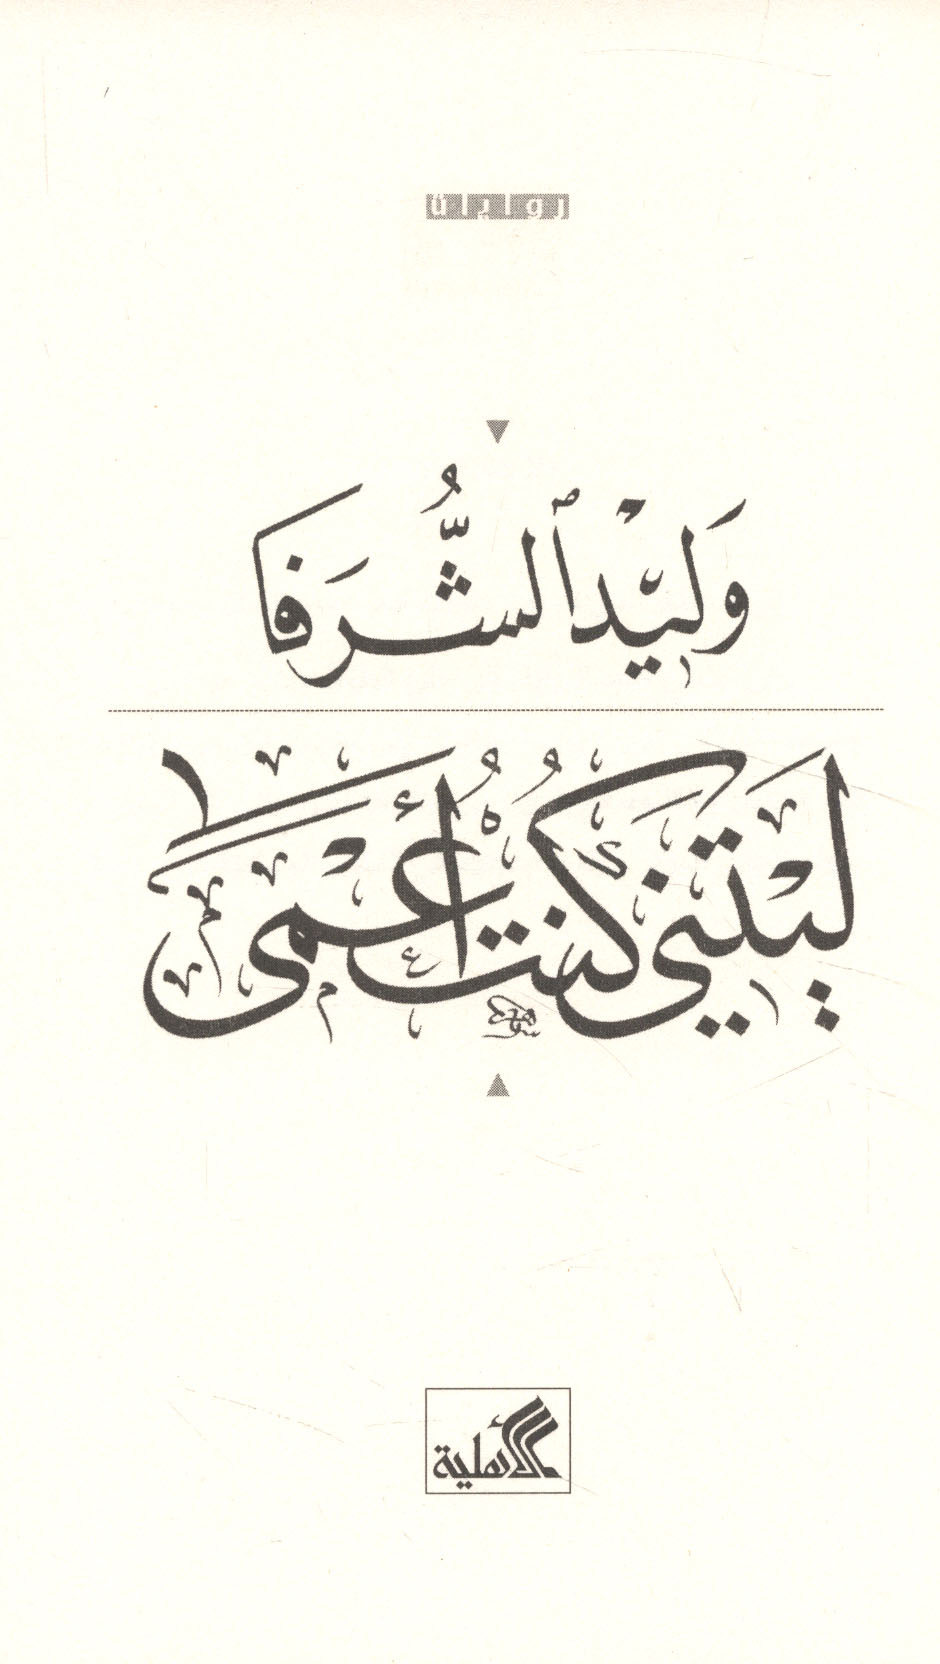 روايات
وَلِيْد ٱلشُّرَفَا
لَيْتَنِي كُنْتُ أَعْمَى
الأهلية